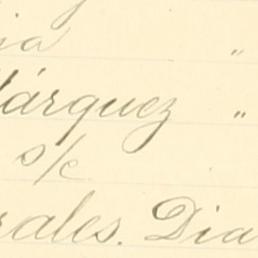 ia "
Márquez "
s/c
rales. Dia